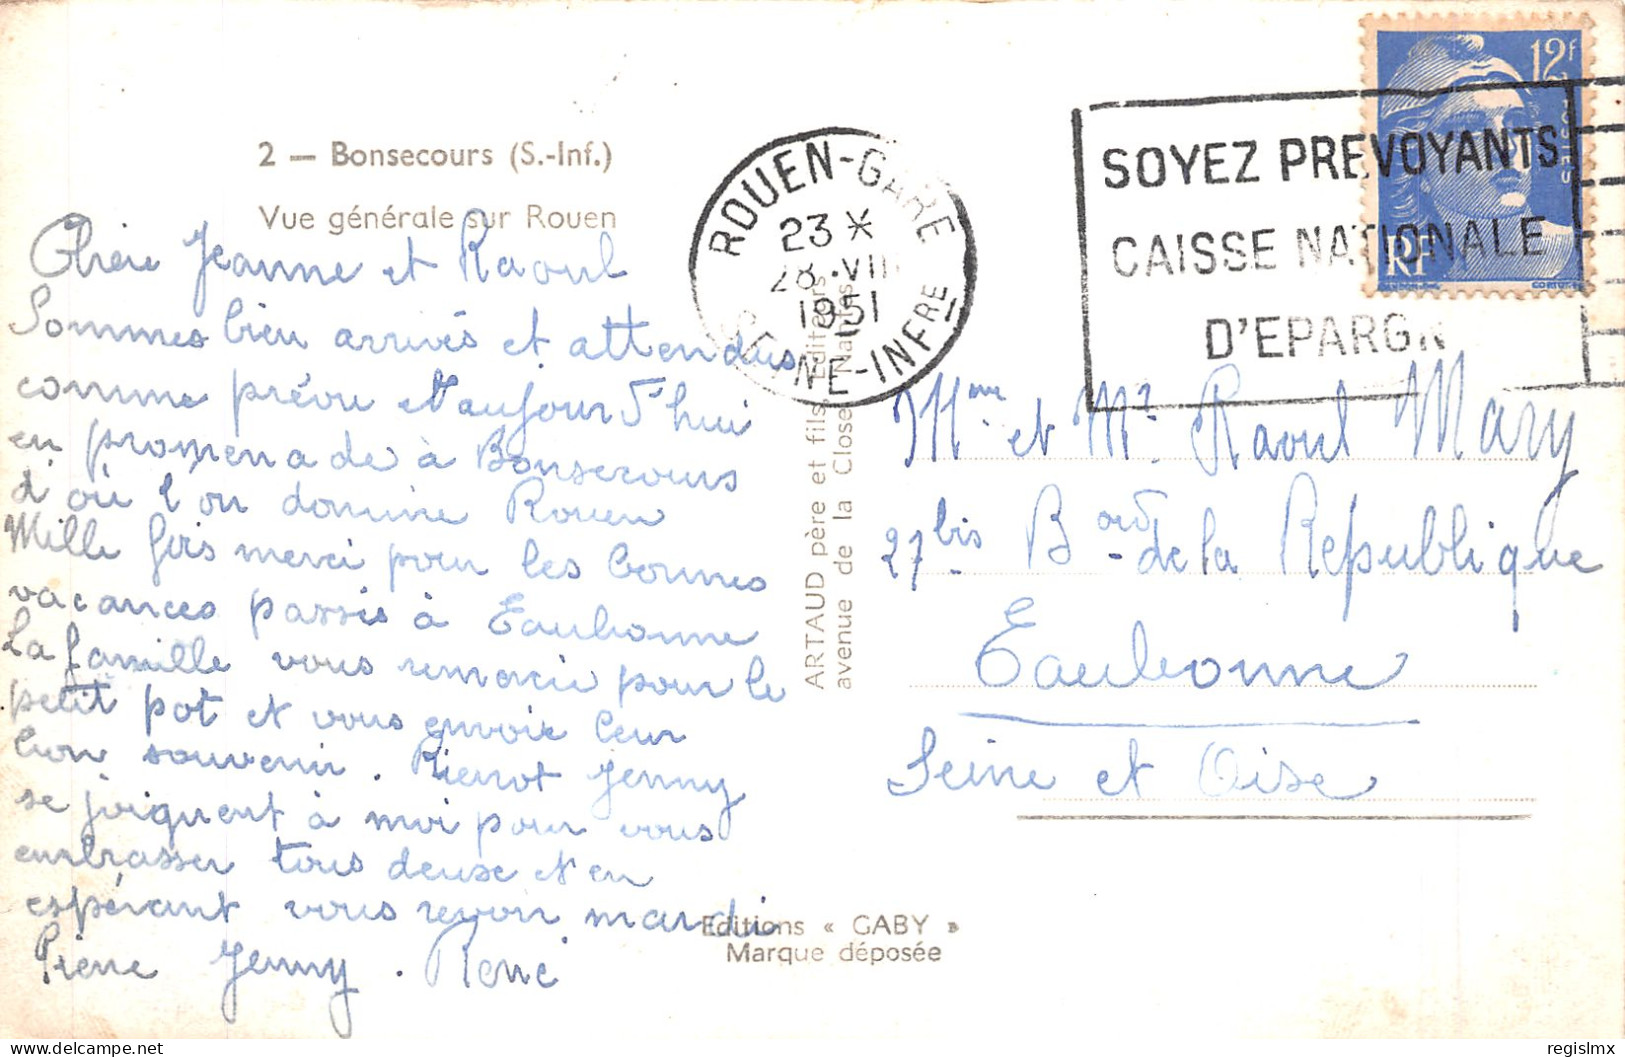 2 — Bonsecours (S.-Inf.)
Vue générale sur Rouen
Chère Jeanne et Raoul
Sommes bien arrivés et attendus
comme prévu et aujourd'hui
en promenade à Bonsecours
d'où l'on domine Rouen
Mille fois merci pour les bonnes
vacances passés à Eaubonne
La famille vous remercie pour le
petit pot et vous envoie leur
bon souvenir. Pierrot Jenny
se joignent à moi pour vous
embrasser tous deux et en
espérant vous revoir mardi
Pierre Jenny. René
ROUEN-GARE
23 *
28 .VII
1951
SEINE-INFRE
SOYEZ PREVOYANTS
CAISSE NATIONALE
D'EPARGN
12f
POSTES
RF
GANDON
CORTOT
ARTAUD père et fils, Editeurs
avenue de la Close Nantes
Mme et Mr Raoul Mary
27 bis Bord de la République
Eaubonne
Seine et Oise
Editions « GABY »
Marque déposée
delcampe.net
regislmx